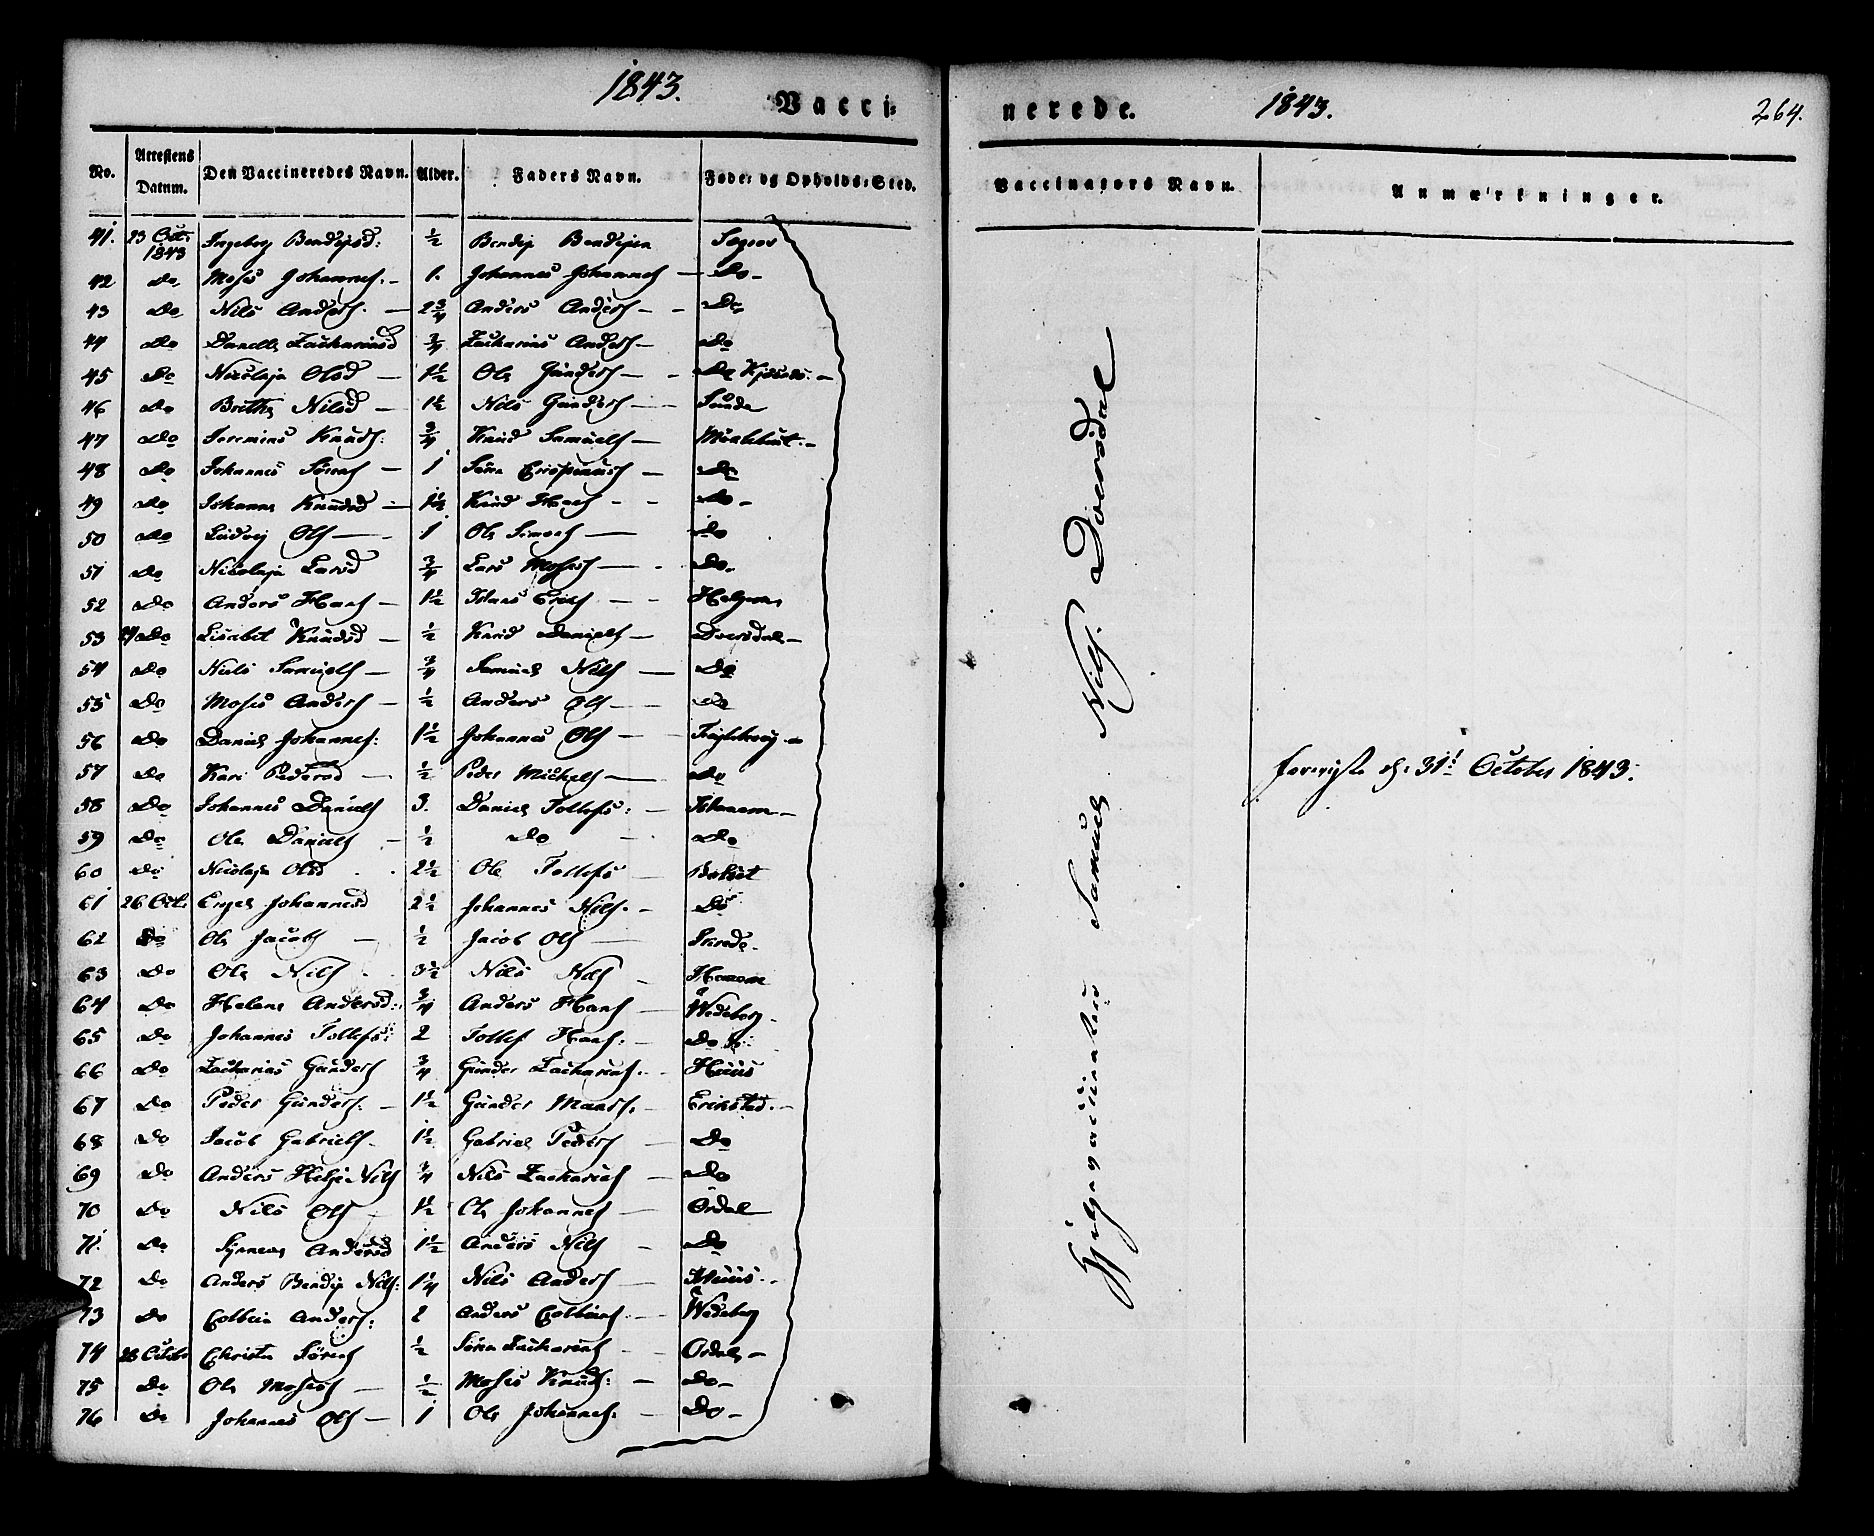 1843.
Vacci-
No. Attestens Datum. Den Vaccineredes Navn. Alder. Faders Navn. Føde- og Opholds-Sted.
41. 23 Oct: 1843 Ingeborg Bendixsd: ½ Bendix Bendixen
42 Do Moses Johannes. – 1. Johannes Johannes – Do –
43 Do Nils Anders. – 2¾ Anders Anders – – Do
44 Do Zachariasd ¾ Zacharias Anders – Do
45 Do Nicolaja Olsd – 1½ Ole Gunders – – Do
46 Do Brithe Nilsd – 1½ Nils Gunders – Sunde
47 Do Jeremias Knuds: ¾ Knud Samuels –
48 Do Johannes Sörens – 1 Do
49 Do Johanne Knudsd – 1½ Knud Hans – – Do –
50 Do Ludvig Ols – 1 Ole Simons – Do
51 Do Nicolaja Larsd ¾ Lars Moses – Do.
52 Do Anders Hans – 1½ Hans Erichs – –
53 24 Do Lisabet Knudsd – ½ Knud Daniels – Doersdal –
54 Do Niels Samuels – ¾ Samuel Nils – Do
55 Do Moses Anders – ½ Anders Ols – – Do
56 Do Daniel Johannes: 1½ Johannes Ols –
57 Do Kari Pedersd – ½ Peder Michels – Do
58 Do Johannes Daniels 3. Daniel Tollefs: –
59 Do Ole Daniels – ½ Do – Do
60 Do Nicolaja Olsd 2½ Ole Tollefs –
61 26 Oct: Engel Johannesd 2½ Johannes Nils. – Do
62 Do Ole Jacobs – ½ Jacob Ols –
63 Do Ole Nils 3½ Nils Nils –
64 Do Helene Andersd: ¾ Anders Hans – Wedeborg –
65 Do Johannes Tollefs: 2 Tollef Hans: – Do
66 Do Zacharias Gunders ¾ Gunder Zacharias. – Huus
67 Do Peder Gunders. – 1½ Gunder – Erikstad. –
68 Do Jacob Gabriels – 1½ Gabriel Peders – Do
69 Do Anders Helje Nils ¾ Nils Zacharias – Do
70 Do Nils Ols – 1½ Ole Johannes – Ordal
71. Do Andersd 1½ Anders Nils – Do
72 Do Anders Bendix Nils: 1¼ Nils Anders – Huus.
73 Do Colbein Anders: 2 Anders Colbeins. – Wedeborg
74 28 Octobr Sörens ½ Zacharias – Ordal –
75 Do Ole Moses – ½ Moses Knuds: – Do –
76 Do Johannes Ols – 1 Ole Johannes. – Do –
nerede. 1843. 264.
Vaccinators Navn. Anmærkninger.
Hjelpevaccinateur Samuel Nils. Doersdal
31t October 1843.